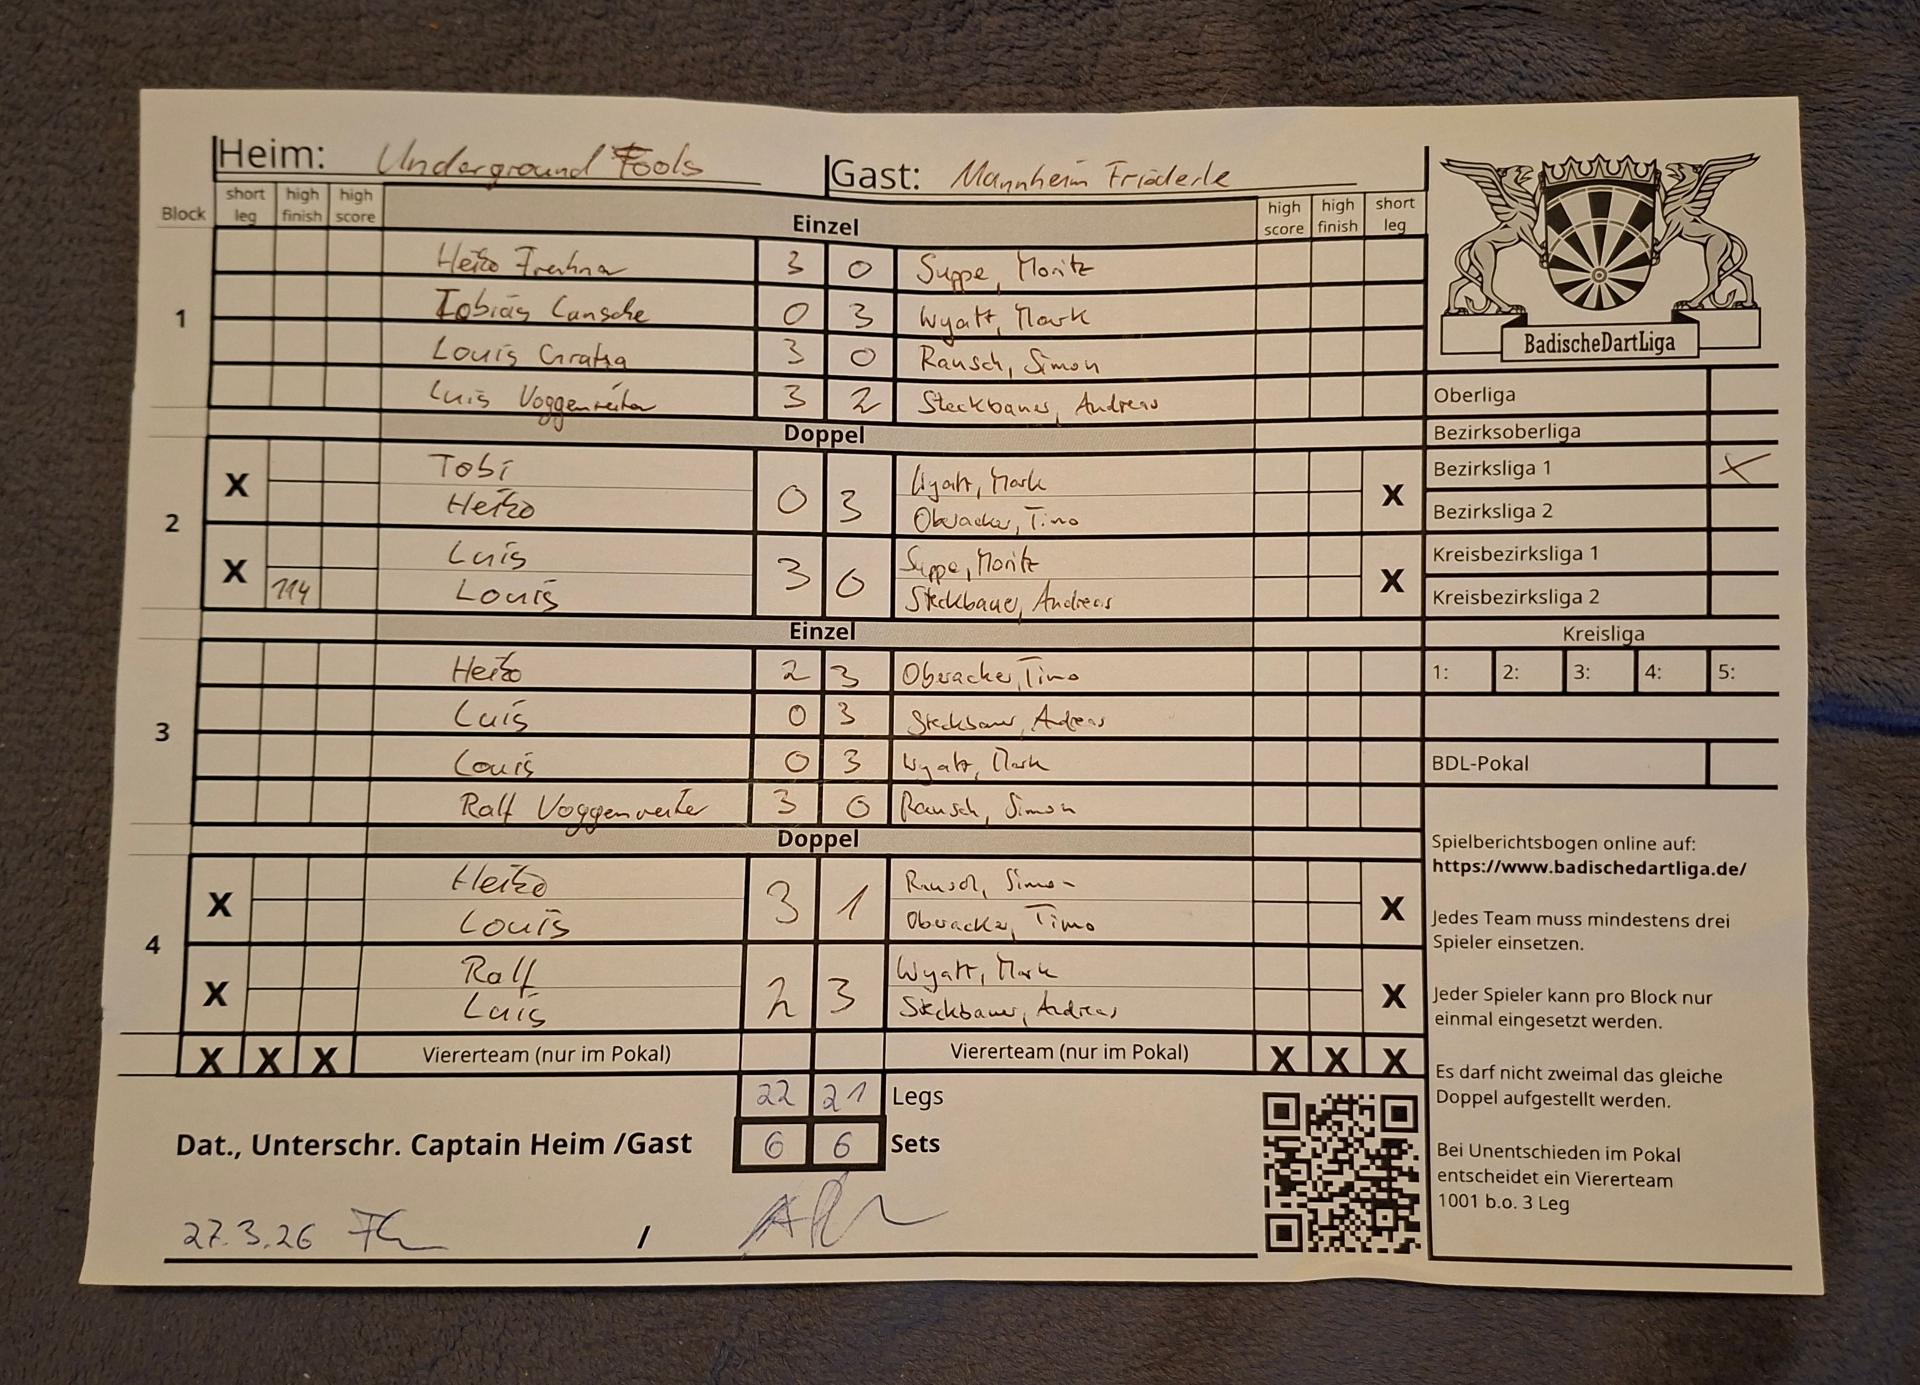 Heim: Underground Fools Gast: Mannheim Friederle
Block short leg high finish high score Einzel high score high finish short leg
1
Heiko 3 0 Suppe, Moritz
Tobias 0 3 Wyatt, Mark
Louis 3 0 Rausch, Simon
Luis Voggenreiter 3 2 Steckbauer, Andreas
Doppel
2
X Tobi 0 3 Wyatt, Mark X
Heiko Oberacker, Timo
X Luis 3 0 Suppe, Moritz X
114 Louis Steckbauer, Andreas
Einzel
3
Heiko 2 3 Oberacker, Timo
Luis 0 3 Steckbauer, Andreas
Louis 0 3 Wyatt, Mark
Ralf Voggenreiter 3 0 Rausch, Simon
Doppel
4
X Heiko 3 1 Rausch, Simon X
Louis Oberacker, Timo
X Ralf 2 3 Wyatt, Mark X
Luis Steckbauer, Andreas
X X X Viererteam (nur im Pokal) Viererteam (nur im Pokal) X X X
22 21 Legs
Dat., Unterschr. Captain Heim /Gast 6 6 Sets
27.3.26 /
BadischeDartLiga
Oberliga
Bezirksoberliga
Bezirksliga 1 X
Bezirksliga 2
Kreisbezirksliga 1
Kreisbezirksliga 2
Kreisliga
1: 2: 3: 4: 5:
BDL-Pokal
Spielberichtsbogen online auf:
https://www.badischedartliga.de/
Jedes Team muss mindestens drei
Spieler einsetzen.
Jeder Spieler kann pro Block nur
einmal eingesetzt werden.
Es darf nicht zweimal das gleiche
Doppel aufgestellt werden.
Bei Unentschieden im Pokal
entscheidet ein Viererteam
1001 b.o. 3 Leg